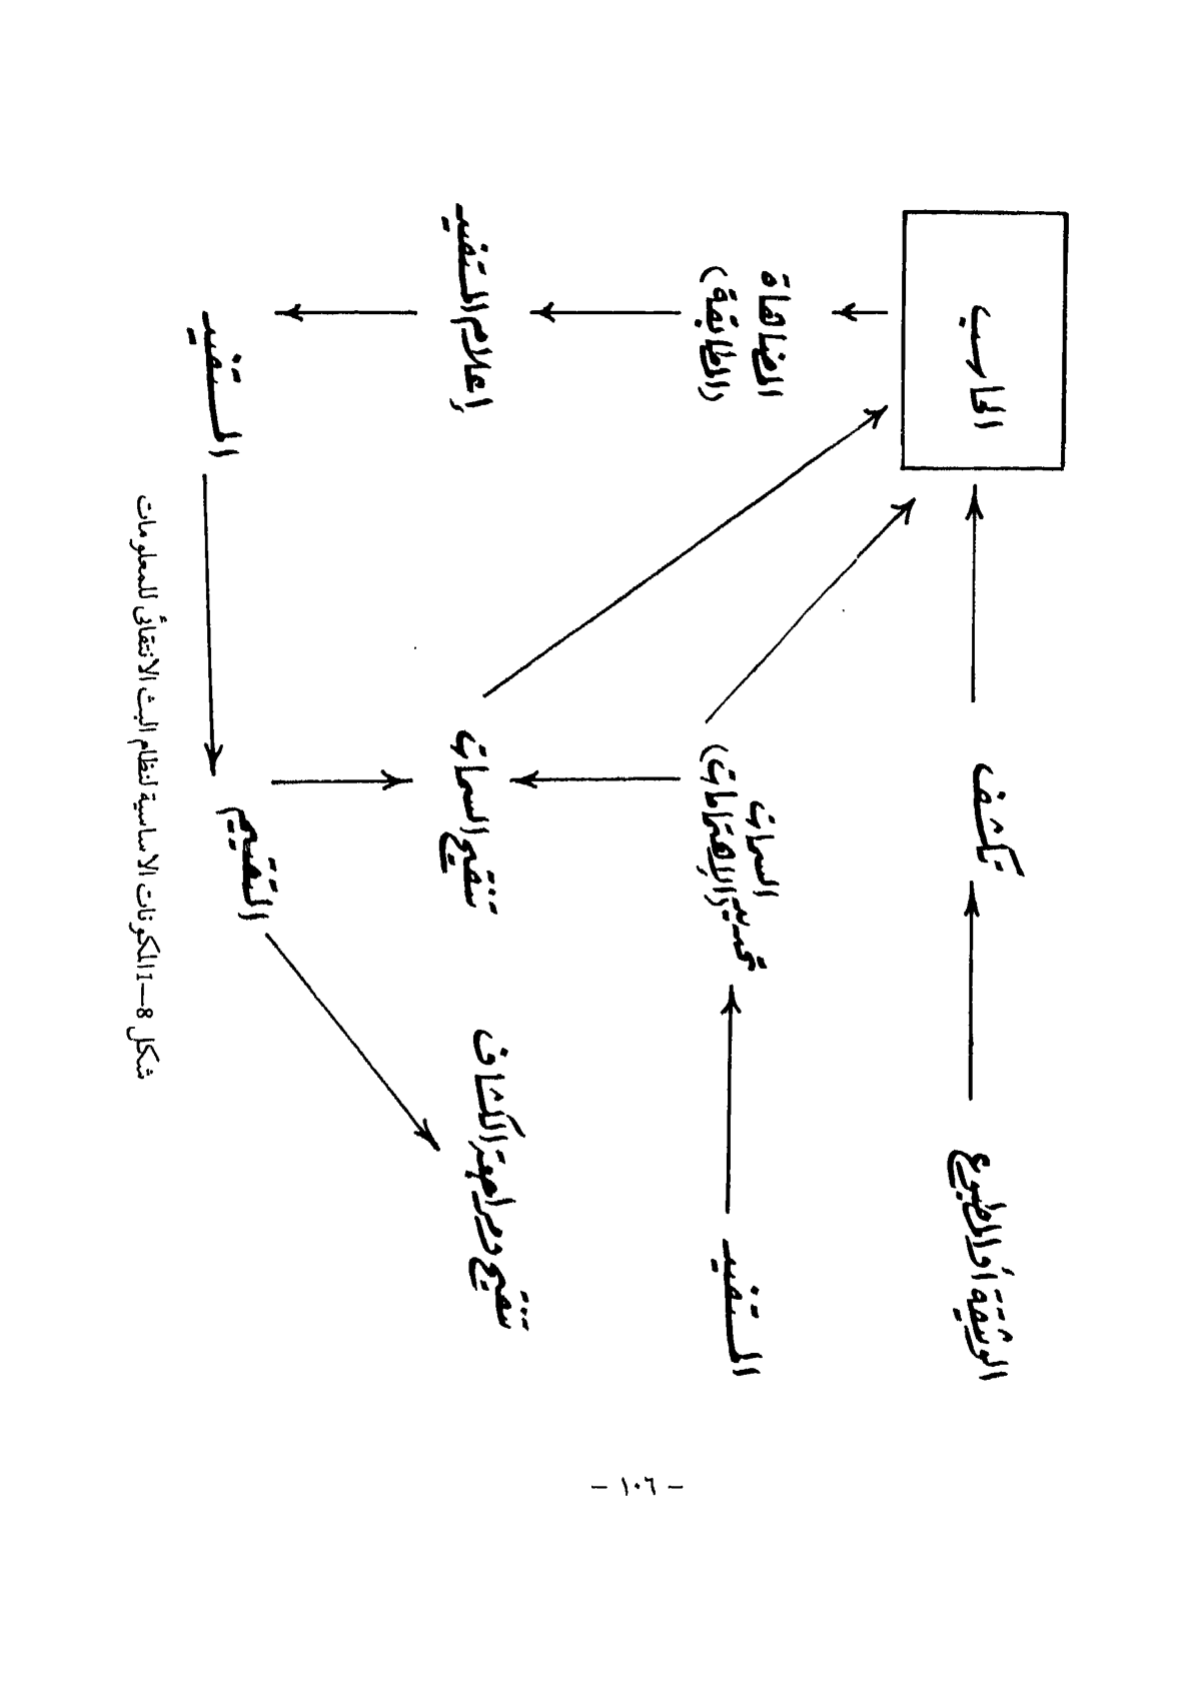 الوثيقة أو المطبوع
تكشف
الحاسب
المستفيد
تحديد السمات
(والاهتمامات)
المضاهاة
(المطابقة)
تنقيح ومراجعة الكشاف
تنقيح السمات
إعلام المستفيد
التقييم
المستفيد
شكل 8—I المكونات الاساسية لنظام البث الانتقائى للمعلومات
— ١٠٦ —